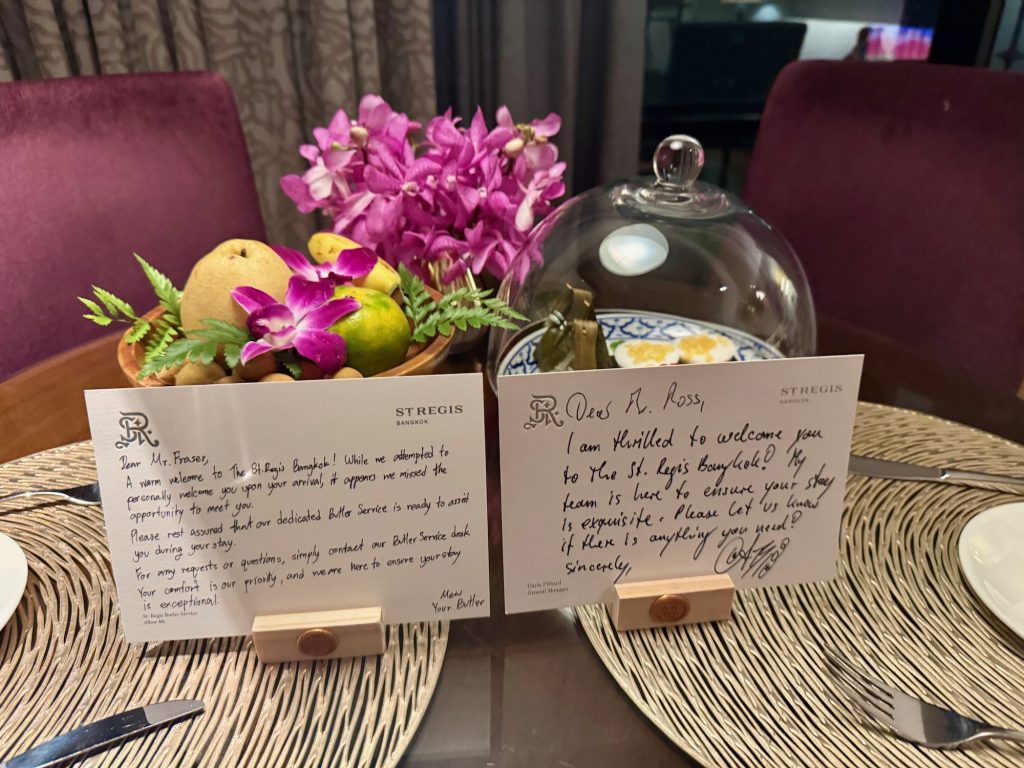 ST REGIS
BANGKOK
Dear Mr. Fraser,
A warm welcome to The St. Regis Bangkok! While we attempted to
personally welcome you upon your arrival, it appears we missed the
opportunity to meet you.
Please rest assured that our dedicated Butler Service is ready to assist
you during your stay.
For any requests or questions, simply contact our Butler Service desk
Your comfort is our priority, and we are here to ensure your stay
is exceptional.
Your Butler
St. Regis Butler Service
Allow Me.
R
ST REGIS
BANGKOK
Dear Mr. Ross,
I am thrilled to welcome you
to The St. Regis Bangkok! My
team is here to ensure your stay
is exquisite. Please let us know
if there is anything you need!
Sincerely,
General Manager